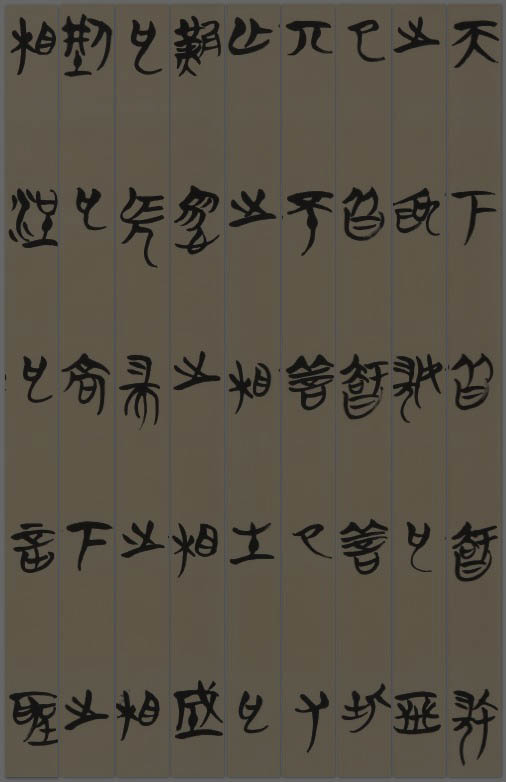 天下皆智美
之為美也亞
已皆智善此
丌不善已又
亡之相生也
難惕之相成
也長耑之相
型也高下之
相浧也音聖